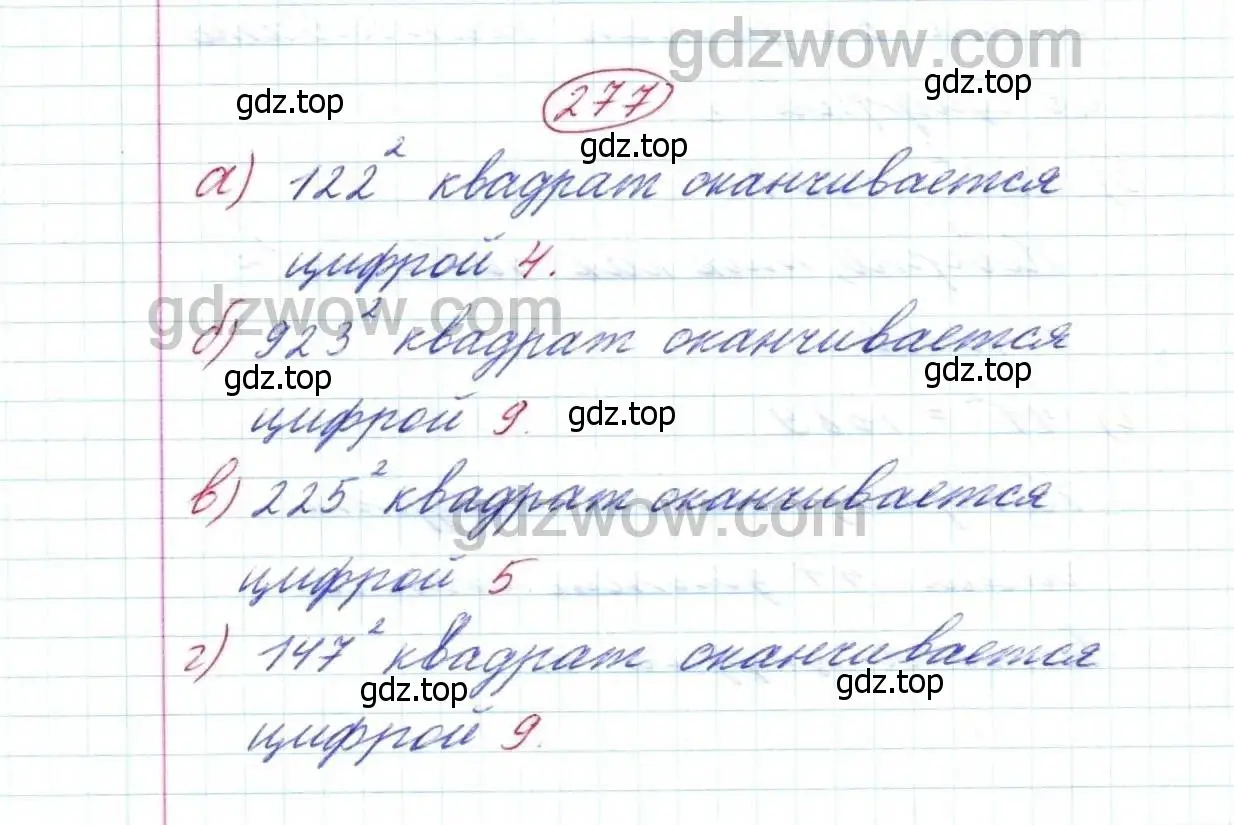 gdzwow.com
gdz.top
gdz.top
277
gdz.top
а) 122² квадрат оканчивается
цифрой 4.
gdzwow.com
б) 923² квадрат оканчивается
gdz.top
gdz.top
цифрой 9.
gdz.top
в) 225² квадрат оканчивается
gdzwow.com
цифрой 5
г) 147² квадрат оканчивается
gdz.top
gdz.top
цифрой 9.